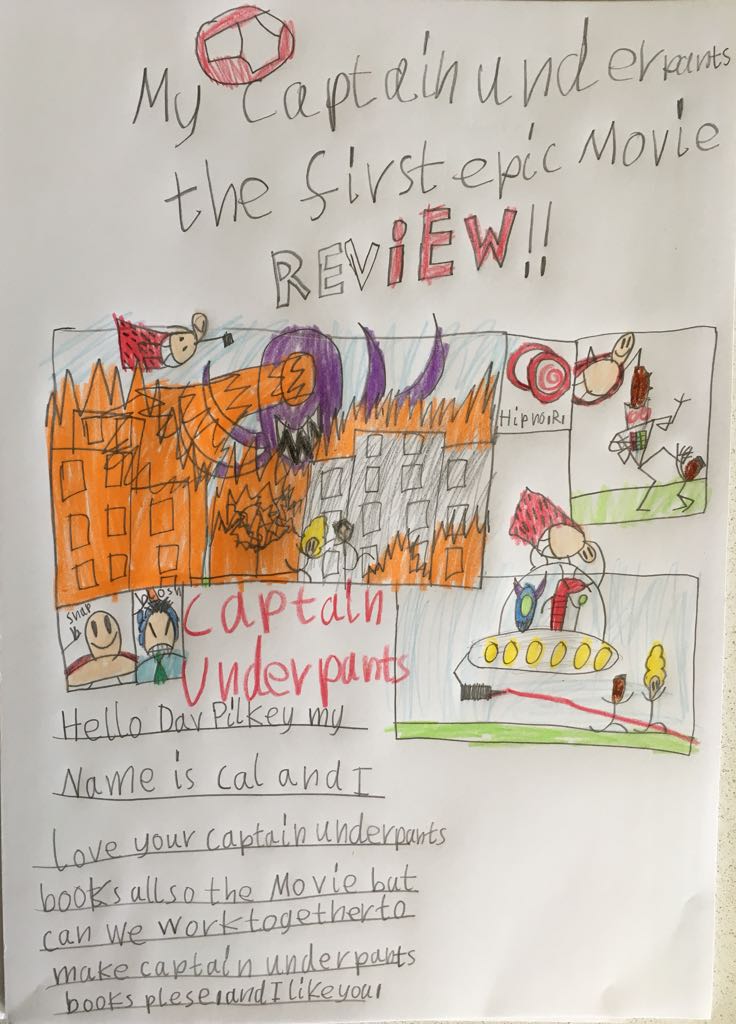 My Captain underpants
the first epic Movie
REViEW!!
HipnoRi
Snap
Captain
Underpants
Hello Dav Pilkey my
Name is Cal and I
love your captain underpants
books allso the Movie but
can we work together to
make captain underpants
books plese and I like you